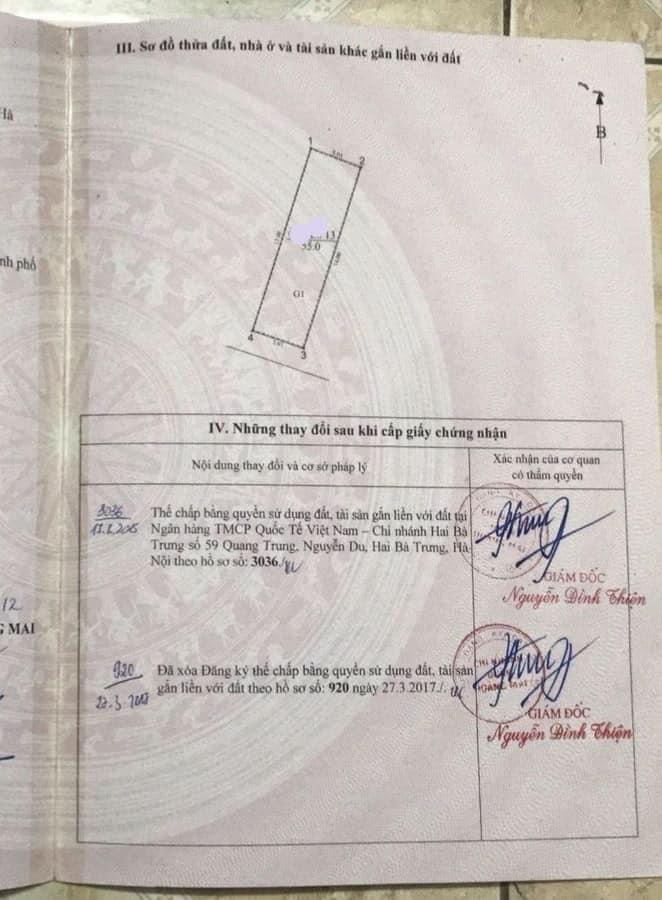 III. Sơ đồ thửa đất, nhà ở và tài sản khác gắn liền với đất
Hà
B
1
2
13
55.0
G1
4
3
nh phố
IV. Những thay đổi sau khi cấp giấy chứng nhận
Nội dung thay đổi và cơ sở pháp lý
Xác nhận của cơ quan
có thẩm quyền
3036
Thế chấp bằng quyền sử dụng đất, tài sản gắn liền với đất tại
Ngân hàng TMCP Quốc Tế Việt Nam – Chi nhánh Hai Bà
Trưng số 59 Quang Trung, Nguyễn Du, Hai Bà Trưng, Hà
Nội theo hồ sơ số: 3036
GIÁM ĐỐC
Nguyễn Đình Thiện
12
G MAI
920
27.3.2017
Đã xóa Đăng ký thế chấp bằng quyền sử dụng đất, tài sản
gắn liền với đất theo hồ sơ số: 920 ngày 27.3.2017./.
HOÀNG MAI
GIÁM ĐỐC
Nguyễn Đình Thiện